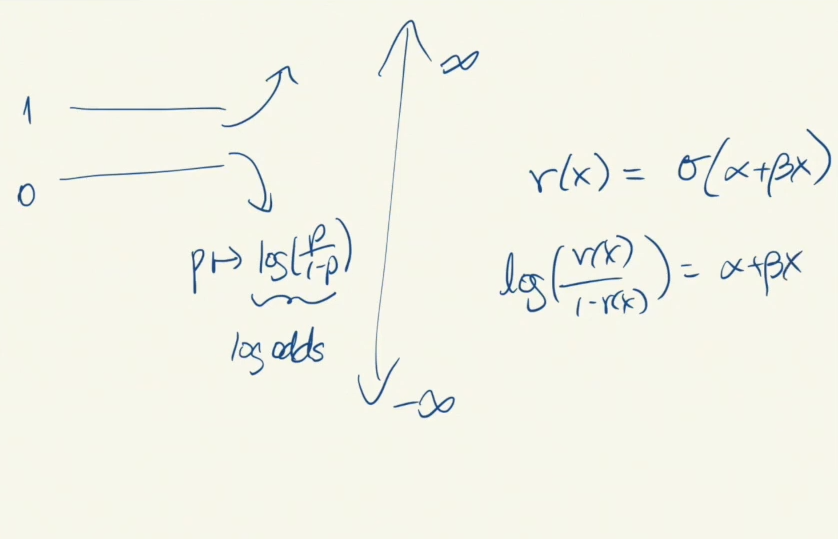 1
0
p ↦ log(p/1-p)
log odds
∞
-∞
r(x) = σ(α+βx)
log(r(x)/1-r(x)) = α+βx